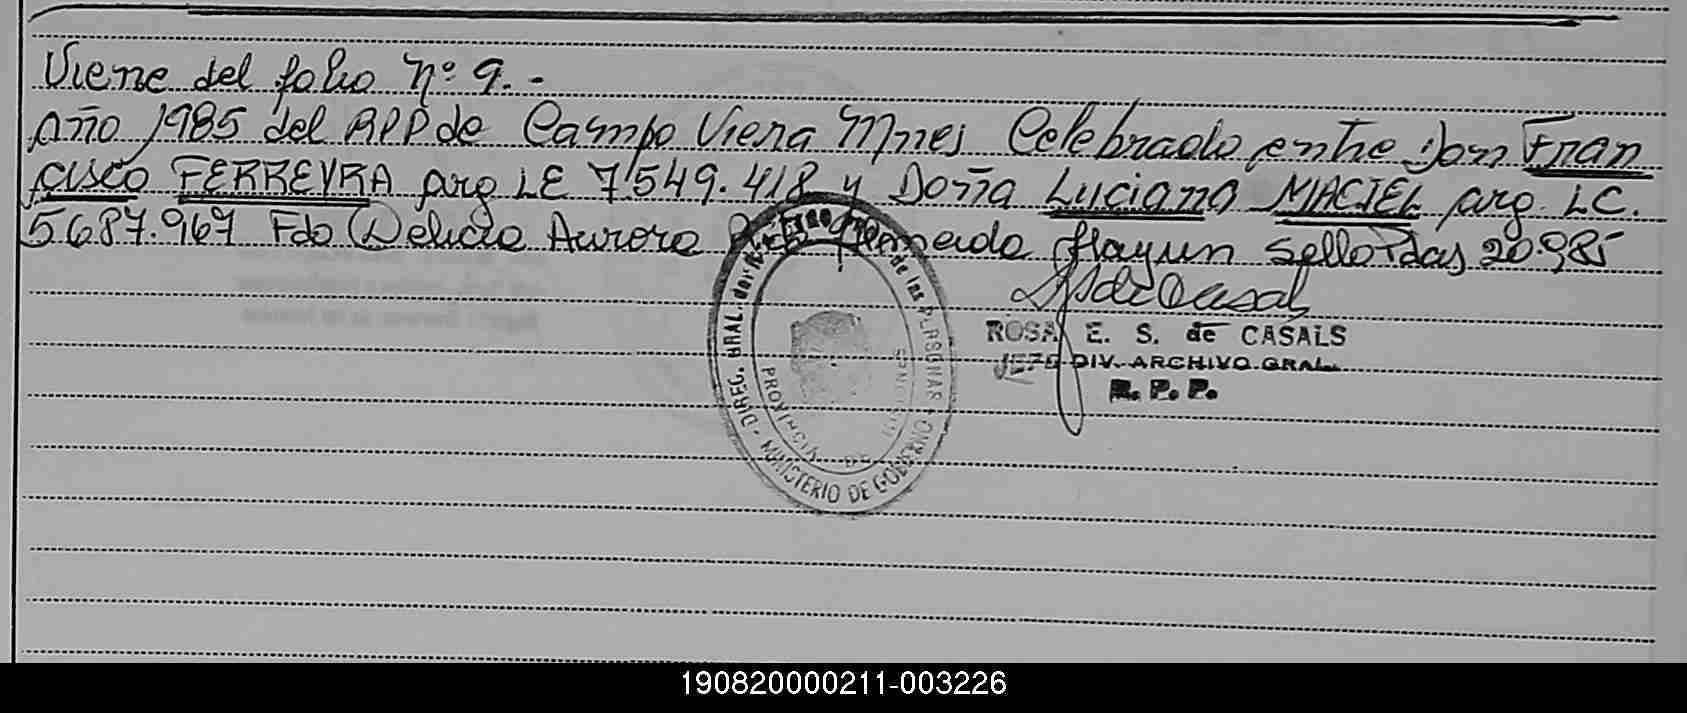 Viene del folio nº 9.-
año 1985 del RPP de Campo Viera Mnes Celebrado entre Don Fran
cisco FERREYRA arg LE 7.549.418 y Doña Luciana MACIEL arg. LC.
5687.967 Fdo Delicia Aurora sello 20.985
ROSA E. S. de CASALS
JEFE DIV. ARCHIVO GRAL.
R. P. P.
DIREC. GRAL. del de las PERSONAS
PROVINCIA DE MISIONES
MINISTERIO DE GOBIERNO
190820000211-003226